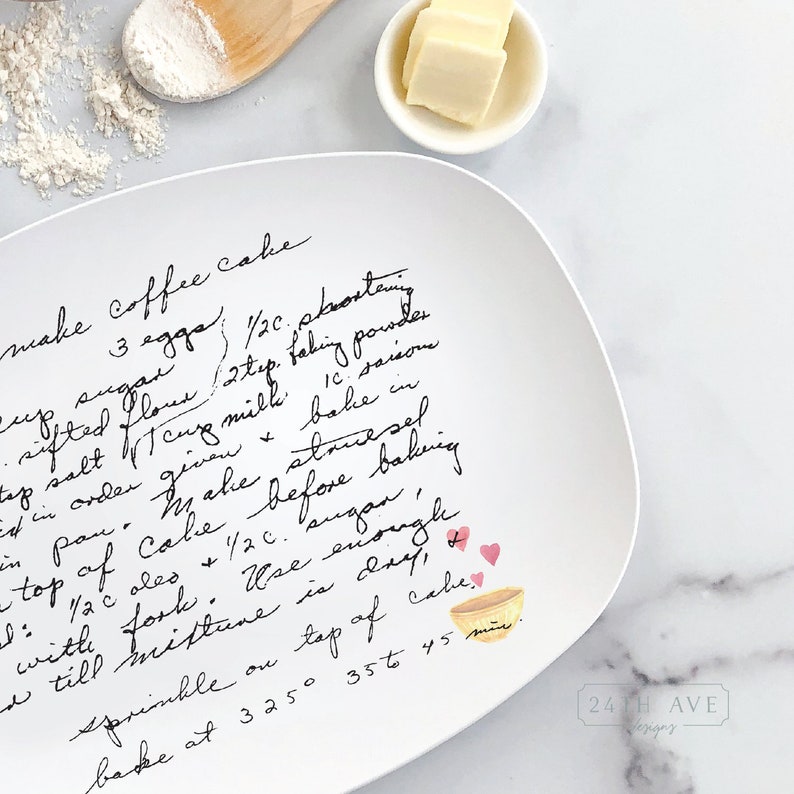 make coffee cake
3 eggs 1/2 c. shortening
cup sugar 2 tsp. baking powder
sifted flour 1 c. raisons
tsp salt 1 cup milk
in order given & bake in
in pan. Make struesel
top of cake before baking
1/2 c oleo + 1/2 c. sugar,
with fork. Use enough
till mixture is dry, &
sprinkle on top of cake.
bake at 325° 35 to 45 min.
24TH AVE
designs